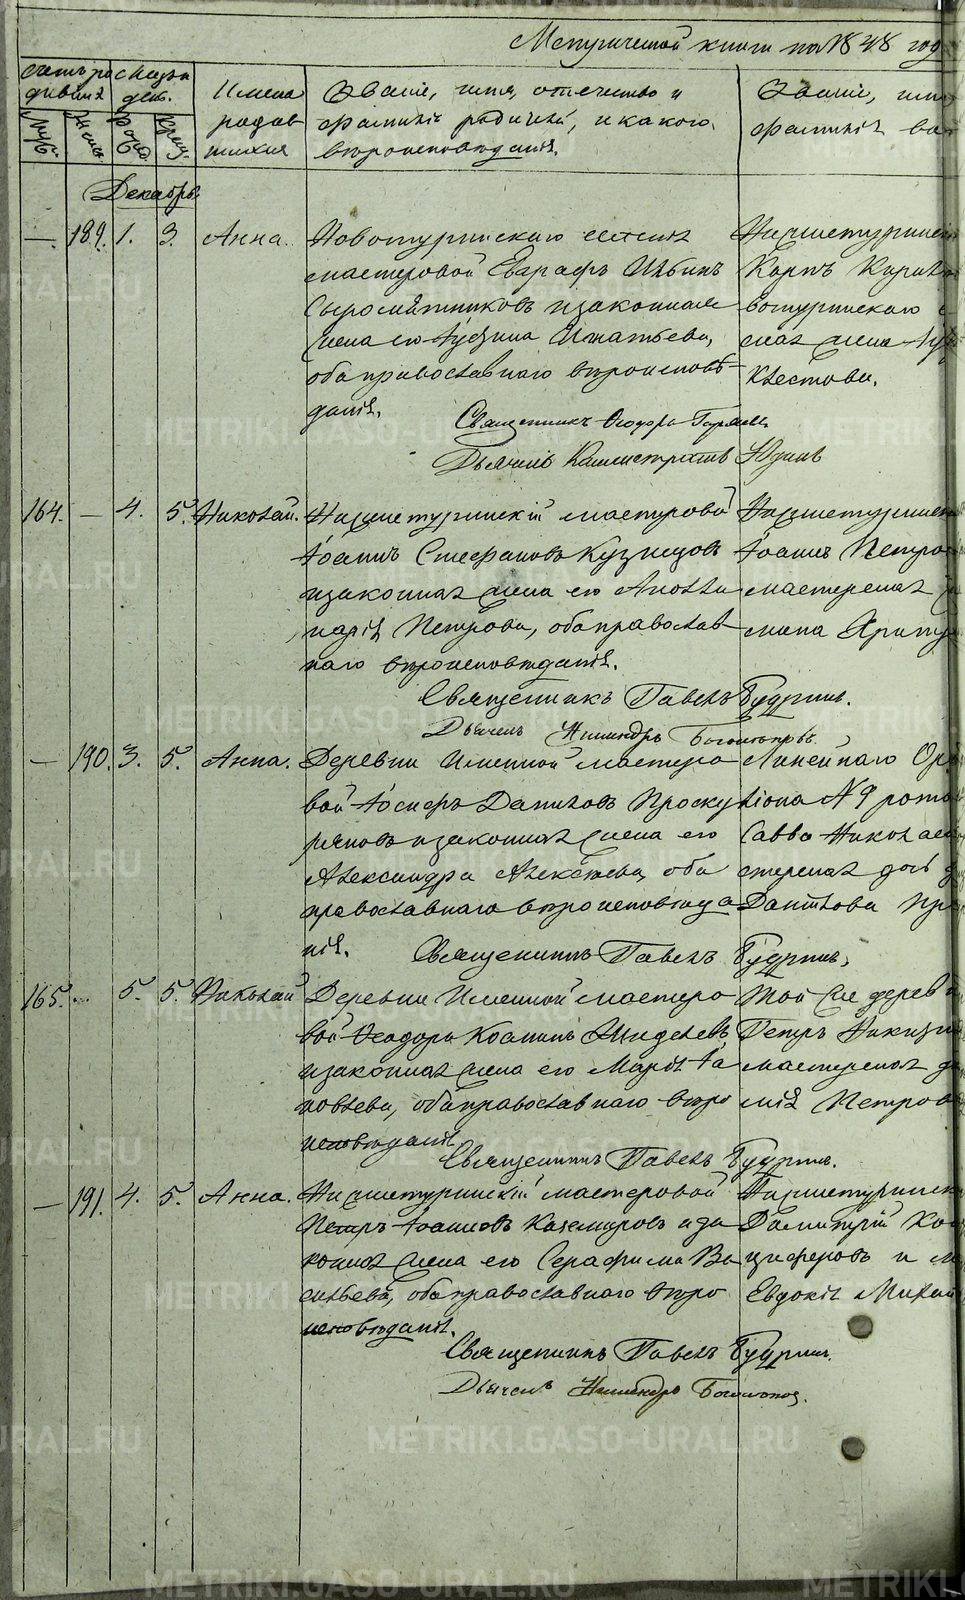 Метрической книги на 1848 год
Счетъ ро Месяцъ
дивших день.
Муж. Женс. Рожд. Крещ.
Имена
родив
шихся
Званіе, имя, отчество и
фамилія родителей, и какого
вероисповеданія.
Званіе, имя
фамилія во
Декабрь
— 189. 1. 3. Анна.
Новотуринскаго селенія
мастеровой Евграфъ Ильинъ
Сыромятниковъ и законная
жена его Игнатьева,
оба православнаго вероисповѣ
данія.
Священникъ Ѳеодоръ
Дьячекъ Каллистратъ Юдинъ
Нижнетуринск
Карпъ Кирил
вотуринскаго с
ская жена
164. — 4. 5. Николай.
Нижнетуринскій мастеровой
Іоаннъ Стефановъ Кузнецовъ
и законная жена его Аполли
нарія Петрова, оба православ
наго вѣроисповѣданія.
Священникъ Павелъ Будринъ.
Дьячекъ Никандръ Богомоловъ
Нижнетуринск
Іоаннъ Петро
мастерская
— 190. 3. 5. Анна.
Деревни Именной мастеро
вой Іосифъ Даниловъ Проску
ряковъ и законная жена его
Александра Алексѣева, оба
православнаго вѣроисповѣда
нія. Священникъ Павелъ Будринъ.
Линейнаго Оре
ліона № 9 роты
Савва Николае
стерская дочь д
Данилова Пр
165. — 5. 5. Николай
Деревни Именной мастеро
вой Ѳеодоръ Косминъ
и законная жена его Марія Іа
ковлева, оба православнаго вѣро
исповѣданія
Священникъ Павелъ Будринъ.
Той же дерев
Петръ Никити
мастерская до
мія Петров
— 191. 4. 5. Анна.
Нижнетуринскій мастеровой
Петръ Іоанновъ Казимировъ и за
конная жена его Серафима Ва
сильева, оба православнаго вѣро
исповѣданія.
Священникъ Павелъ Будринъ.
Дьячекъ Никандръ Богомолов.
Нижнетуринск
Димитрій
циферовъ и м
Евдокія Михай
METRIKI.GASO-URAL.RU